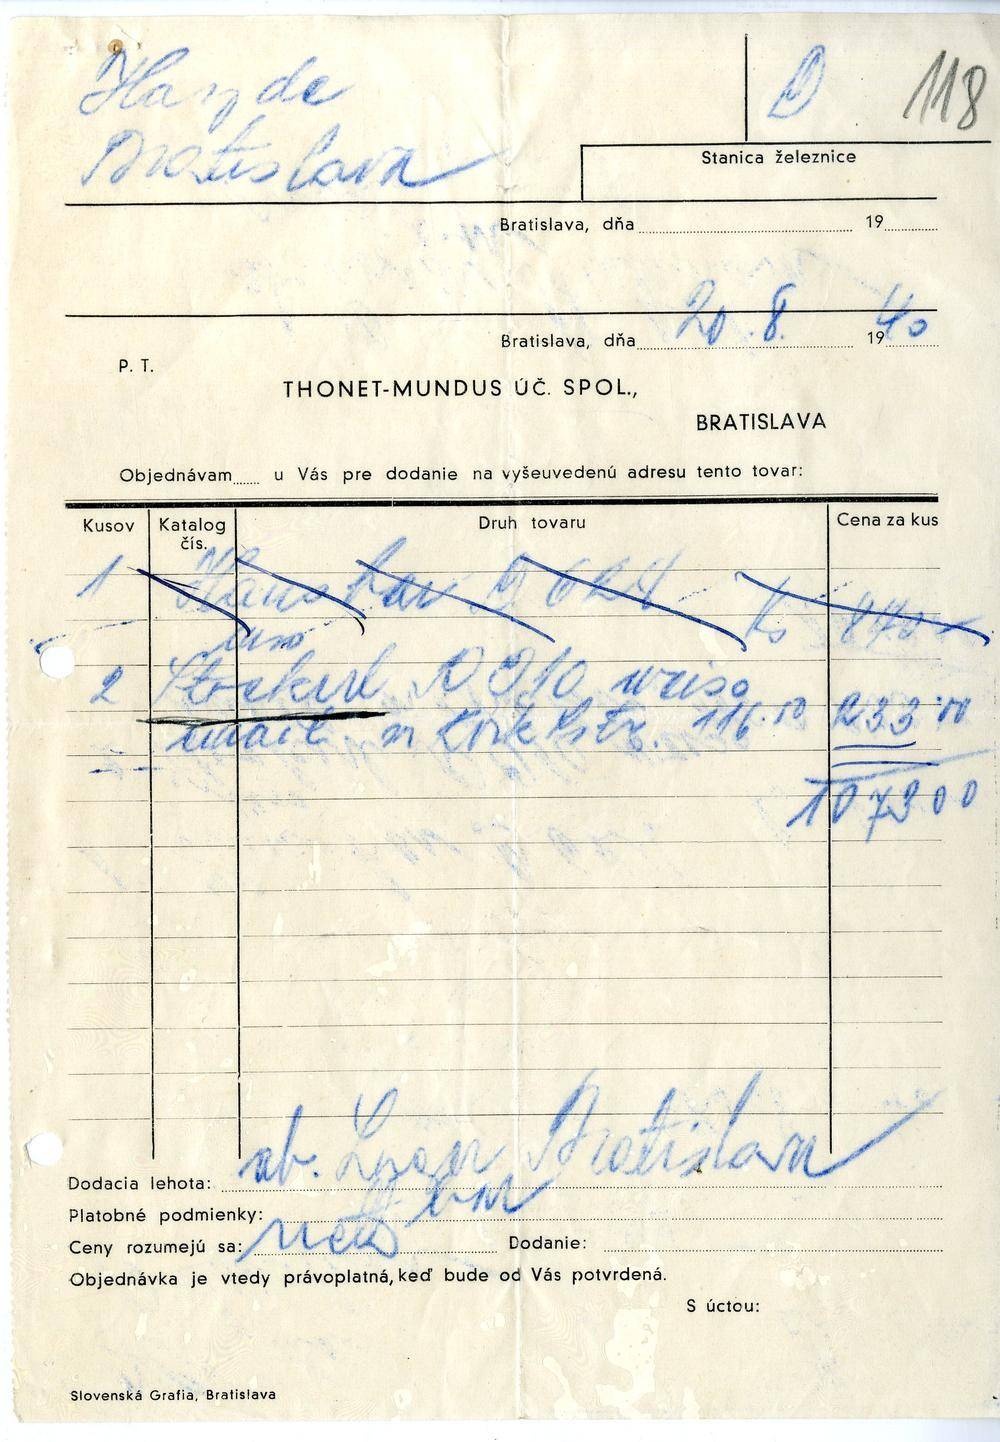 Hayde
D 118
Bratislava
Stanica železnice
Bratislava, dňa 19
Bratislava, dňa 20.8. 1940
P. T.
THONET-MUNDUS ÚČ. SPOL.,
BRATISLAVA
Objednávam u Vás pre dodanie na vyšeuvedenú adresu tento tovar:
Kusov Katalog čís. Druh tovaru Cena za kus
1 D 624 Ks 840
2 Stockerl D 910 weiss
email m Kork 116.50 233.00
1073 00
ab. Lager Bratislava
Dodacia lehota:
Platobné podmienky:
Ceny rozumejú sa: netto Dodanie:
Objednávka je vtedy právoplatná, keď bude od Vás potvrdená.
S úctou:
Slovenská Grafia, Bratislava